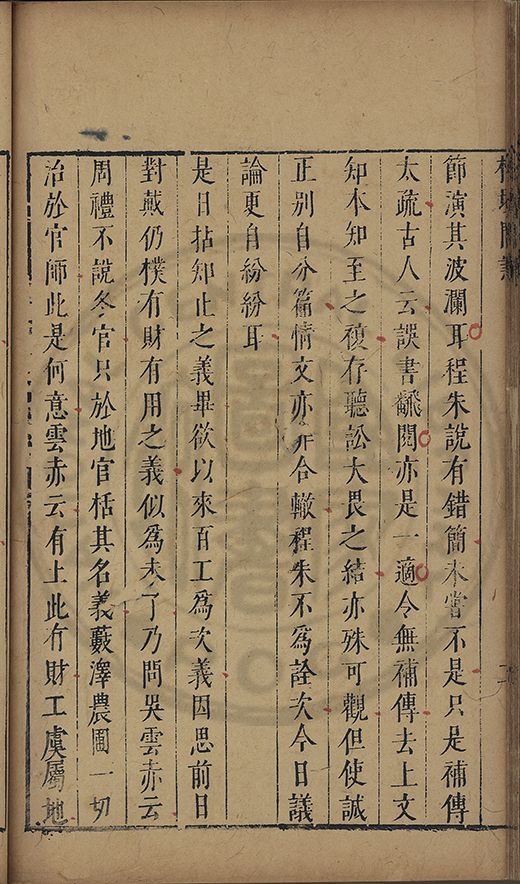 節演其波瀾耳程朱說有錯簡未嘗不是只是補傳
太疏古人云誤書飜閱亦是一適今無補傳去上文
知本知至之複存聽訟大畏之結亦殊可觀但使誠
正別自分篇情文亦非合轍程朱不為詮次今日議
論更自紛紛耳
是日拈知止之義畢欲以來百工為次義因思前日
對戴仍樸有財有用之義似為未了乃問吳雲赤云
周禮不說冬官只於地官栝其名義藪澤農圃一切
治於官師此是何意雲赤云有土此有財工虞屬地